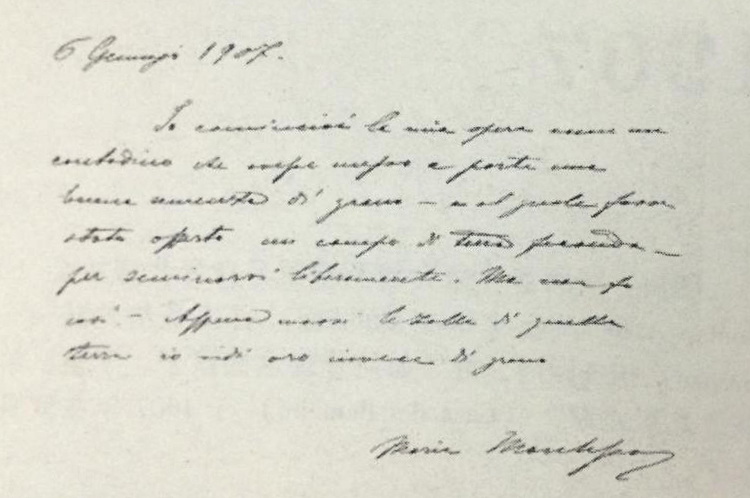 6 Gennajo 1907.
Io cominciai la mia opera come un
contadino che avesse messo a parte una
buona semenza di grano – e al quale fosse
stato offerto un campo di terra feconda –
per seminarvi liberamente. Ma non fu
così – Appena mossi le zolle di quella
terra io vidi oro invece di grano
Maria Montessori